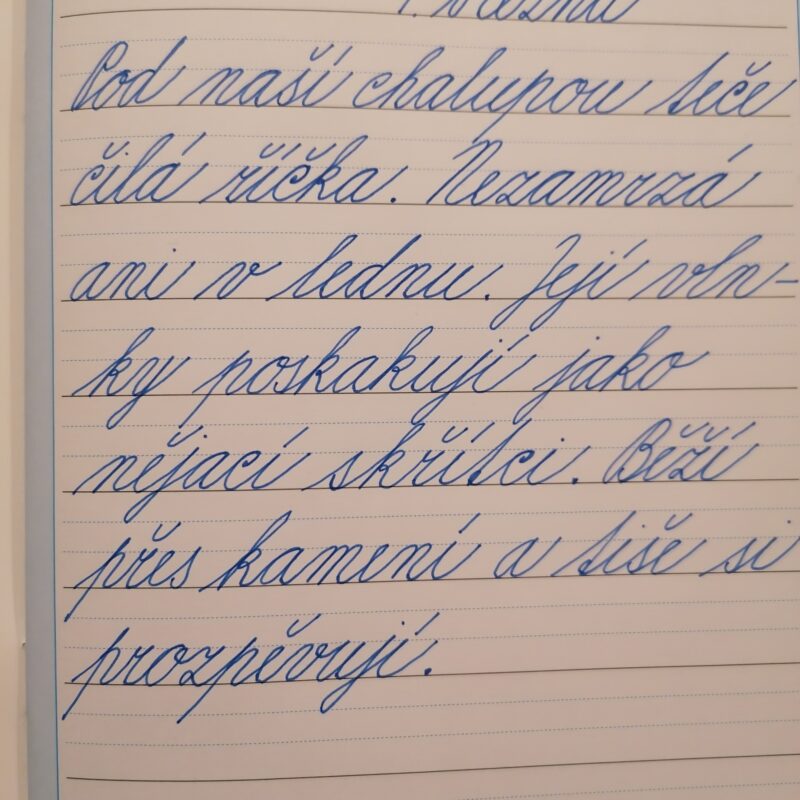 1. března
Pod naší chalupou teče
čilá říčka. Nezamrzá
ani v lednu. Její vln-
ky poskakují jako
nějací skřítci. Běží
přes kamení a tiše si
prozpěvují.